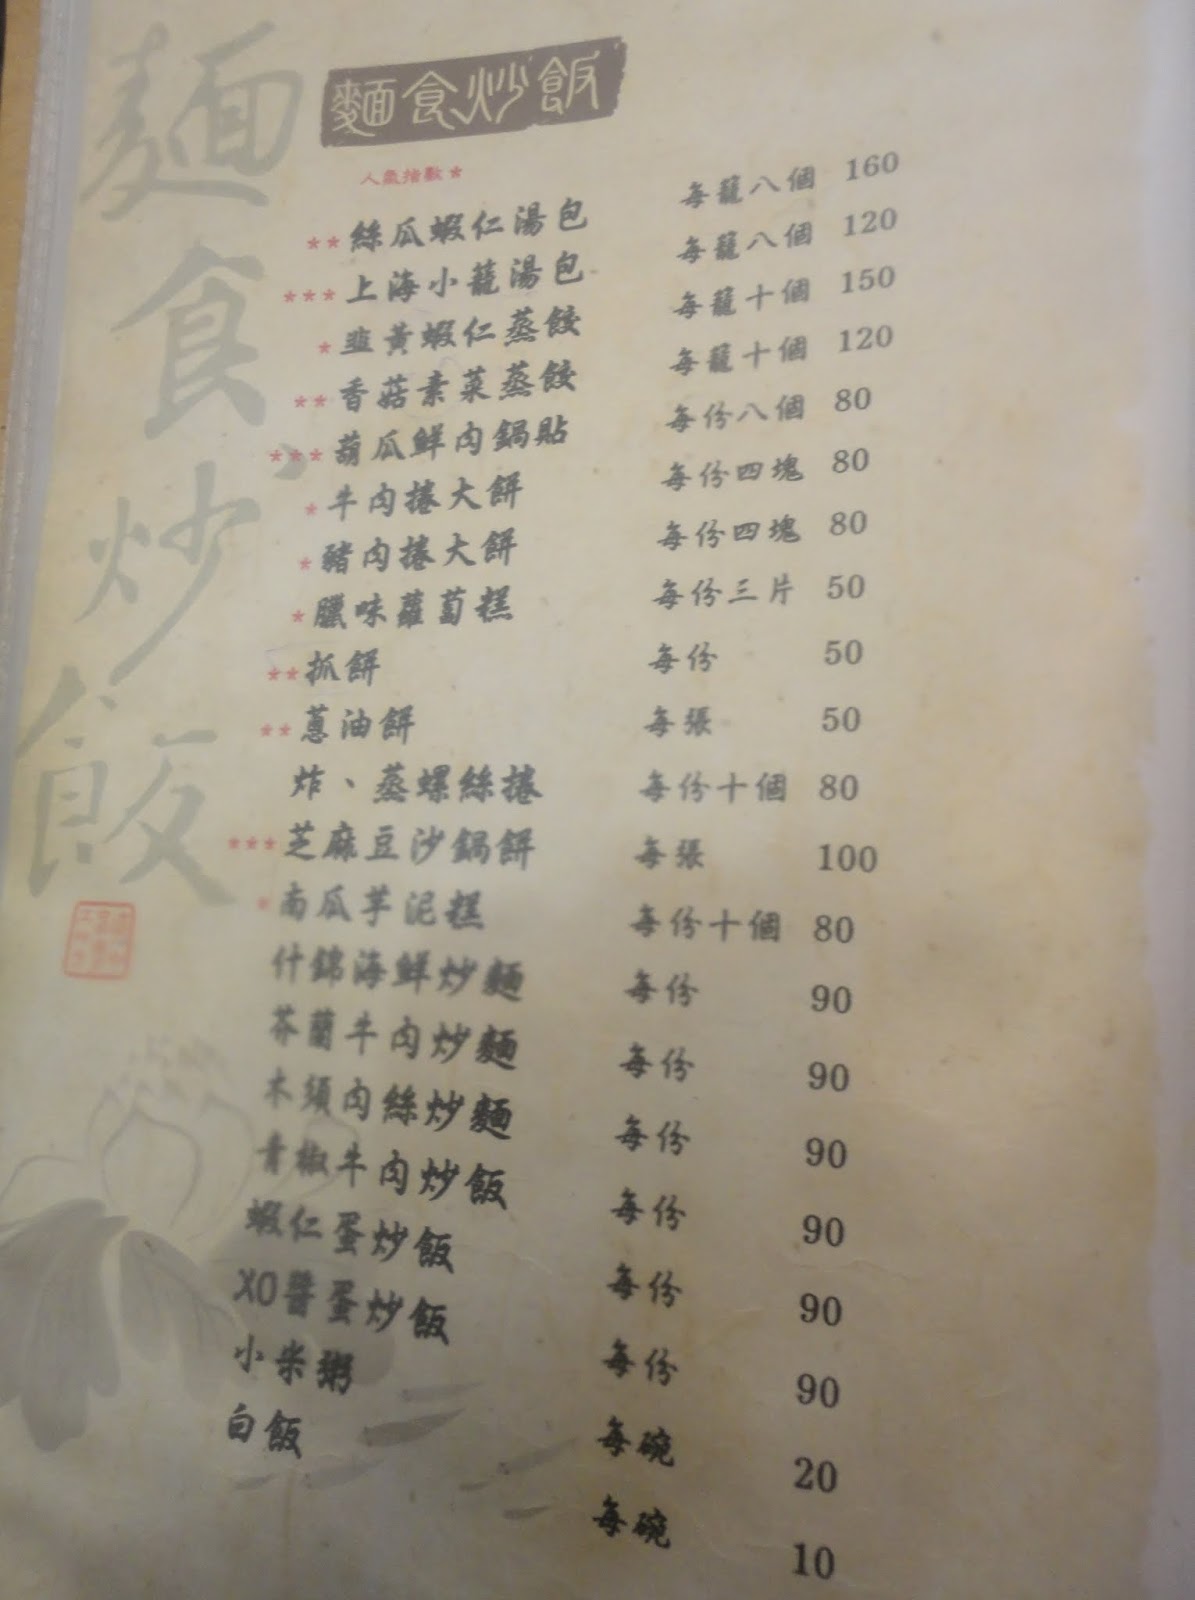 麵食炒飯
麵食炒飯
人氣指數★
**絲瓜蝦仁湯包 每籠八個 160
***上海小籠湯包 每籠八個 120
*韭黃蝦仁蒸餃 每籠十個 150
**香菇素菜蒸餃 每籠十個 120
***葫瓜鮮肉鍋貼 每份八個 80
*牛肉捲大餅 每份四塊 80
*豬肉捲大餅 每份四塊 80
*臘味蘿蔔糕 每份三片 50
**抓餅 每份 50
**蔥油餅 每張 50
炸、蒸螺絲捲 每份十個 80
***芝麻豆沙鍋餅 每張 100
*南瓜芋泥糕 每份十個 80
什錦海鮮炒麵 每份 90
芥蘭牛肉炒麵 每份 90
木須肉絲炒麵 每份 90
青椒牛肉炒飯 每份 90
蝦仁蛋炒飯 每份 90
XO醬蛋炒飯 每份 90
小米粥 每碗 20
白飯 每碗 10